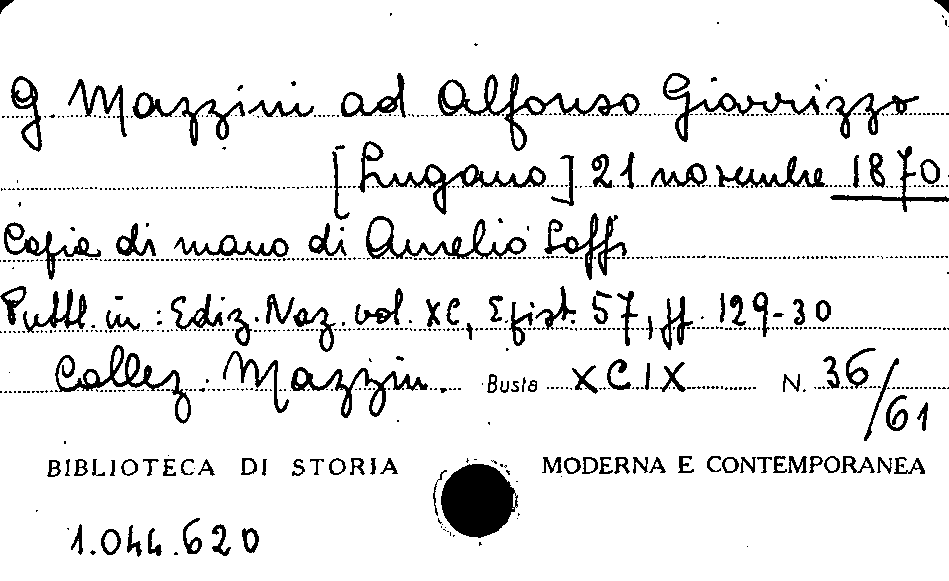 G. Mazzini ad Alfonso Giarrizzo
[Lugano] 21 novembre 1870
Copia di mano di Aurelio Saffi
Pubbl. in: Ediz. Naz. vol. XC, Epist. 57, pp. 129-30
Collez. Mazzin. Busta XCIX N. 36/61
BIBLIOTECA DI STORIA MODERNA E CONTEMPORANEA
1.044.620